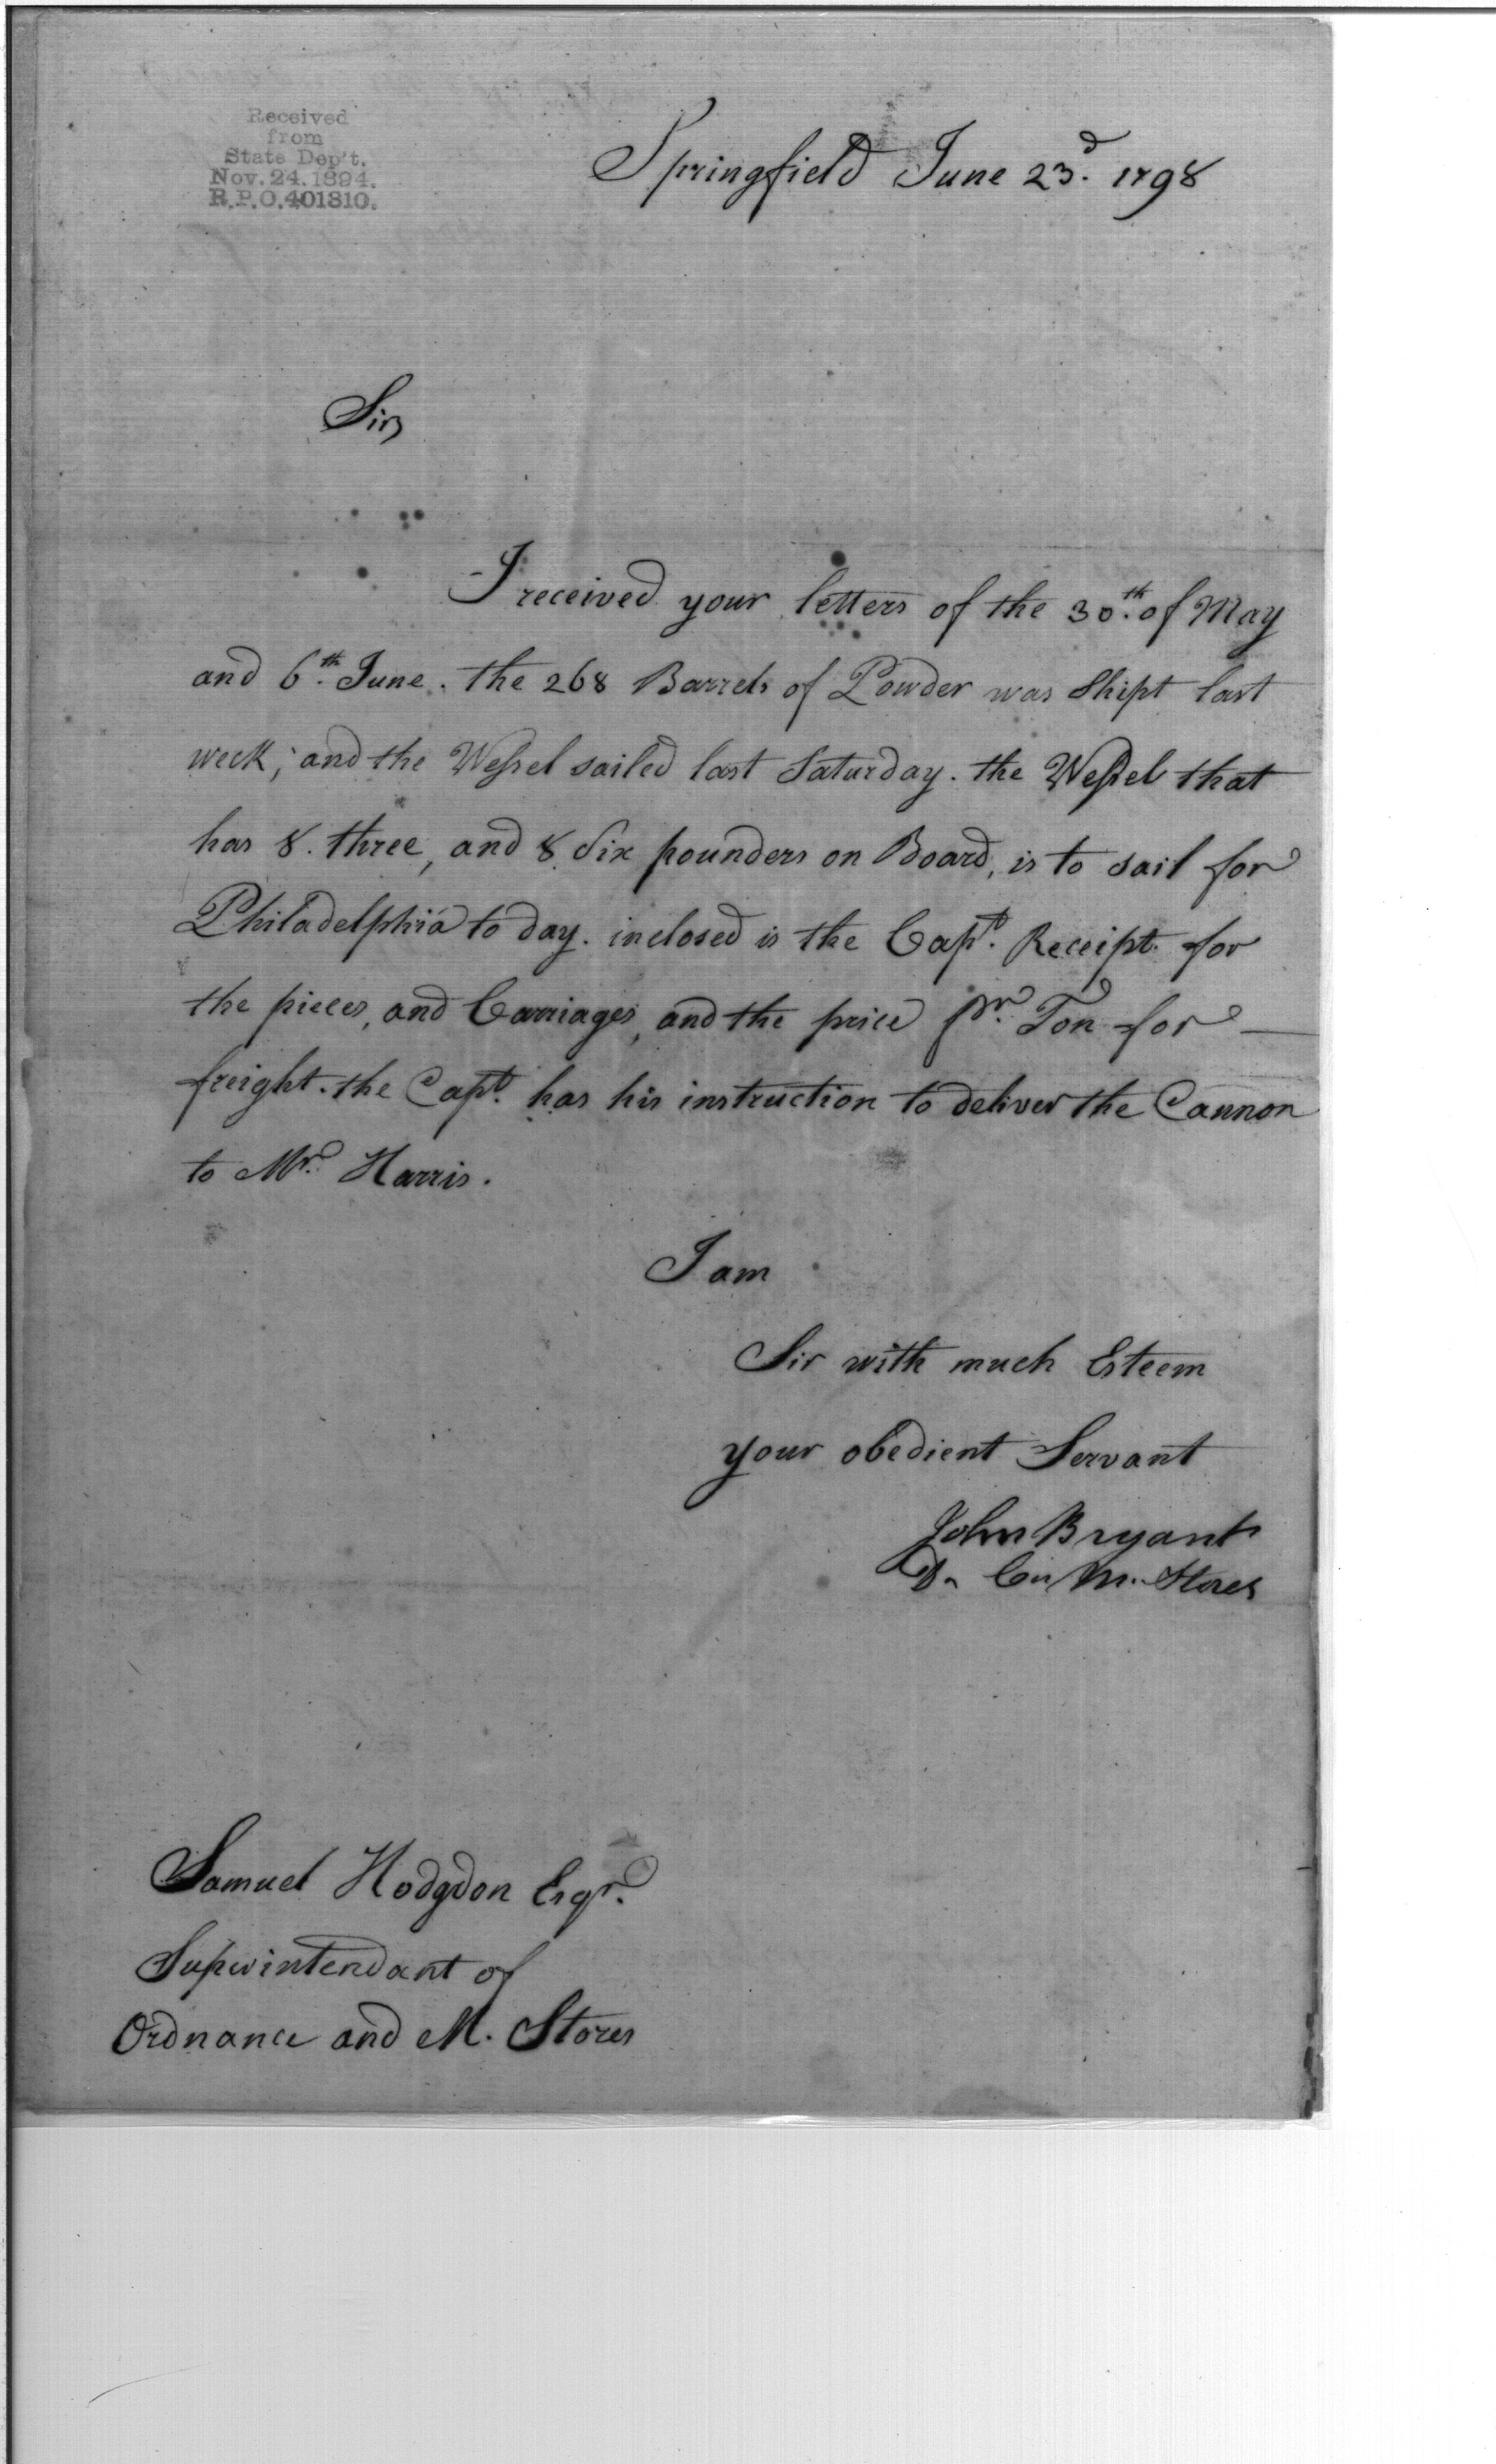 Received
from
State Dep't.
Nov. 24. 1894.
R.P.O. 401810.
Springfield June 23.d 1798
Sir,
I received your letters of the 30.th of May
and 6.th June. the 268 Barrels of Powder was Shipt last
week; and the Wessel sailed last Saturday. the Wessel that
has 8. three, and 8 Six pounders on Board, is to sail for
Philadelphia to day. inclosed is the Capt. Receipt for
the pieces, and Carriages, and the price pr. Ton for —
freight. the Capt. has his instruction to deliver the Cannon
to Mr. Harris.
I am
Sir with much Esteem
your obedient Servant
John Bryant
D. Co M. Stores
Samuel Hodgdon Esqr.
Superintendant of
Ordnance and M. Stores